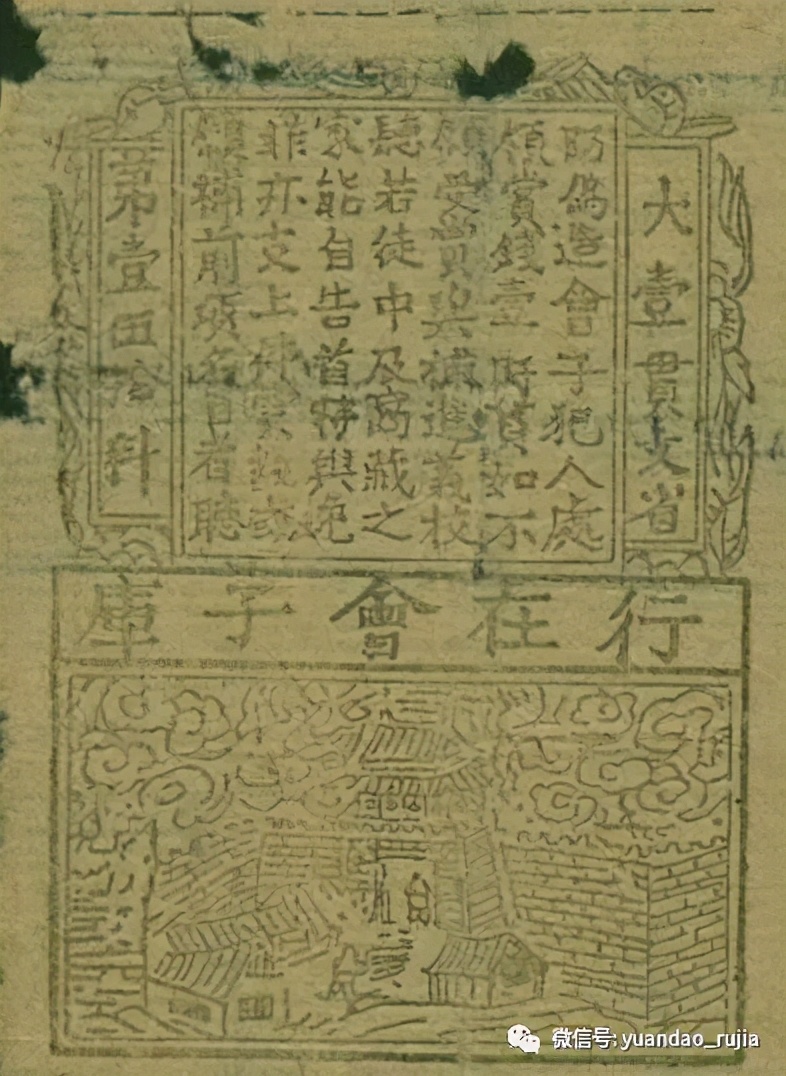 大壹貫文省
防偽造會子犯人處
賞錢壹時貨如不
受賞與補進義校
聽若徒中及窩藏之
家能自告首特與免
罪亦支上件賞錢或
願補前項名目者聽
第壹伍拾料
行在會子庫
微信号: yuandao_rujia